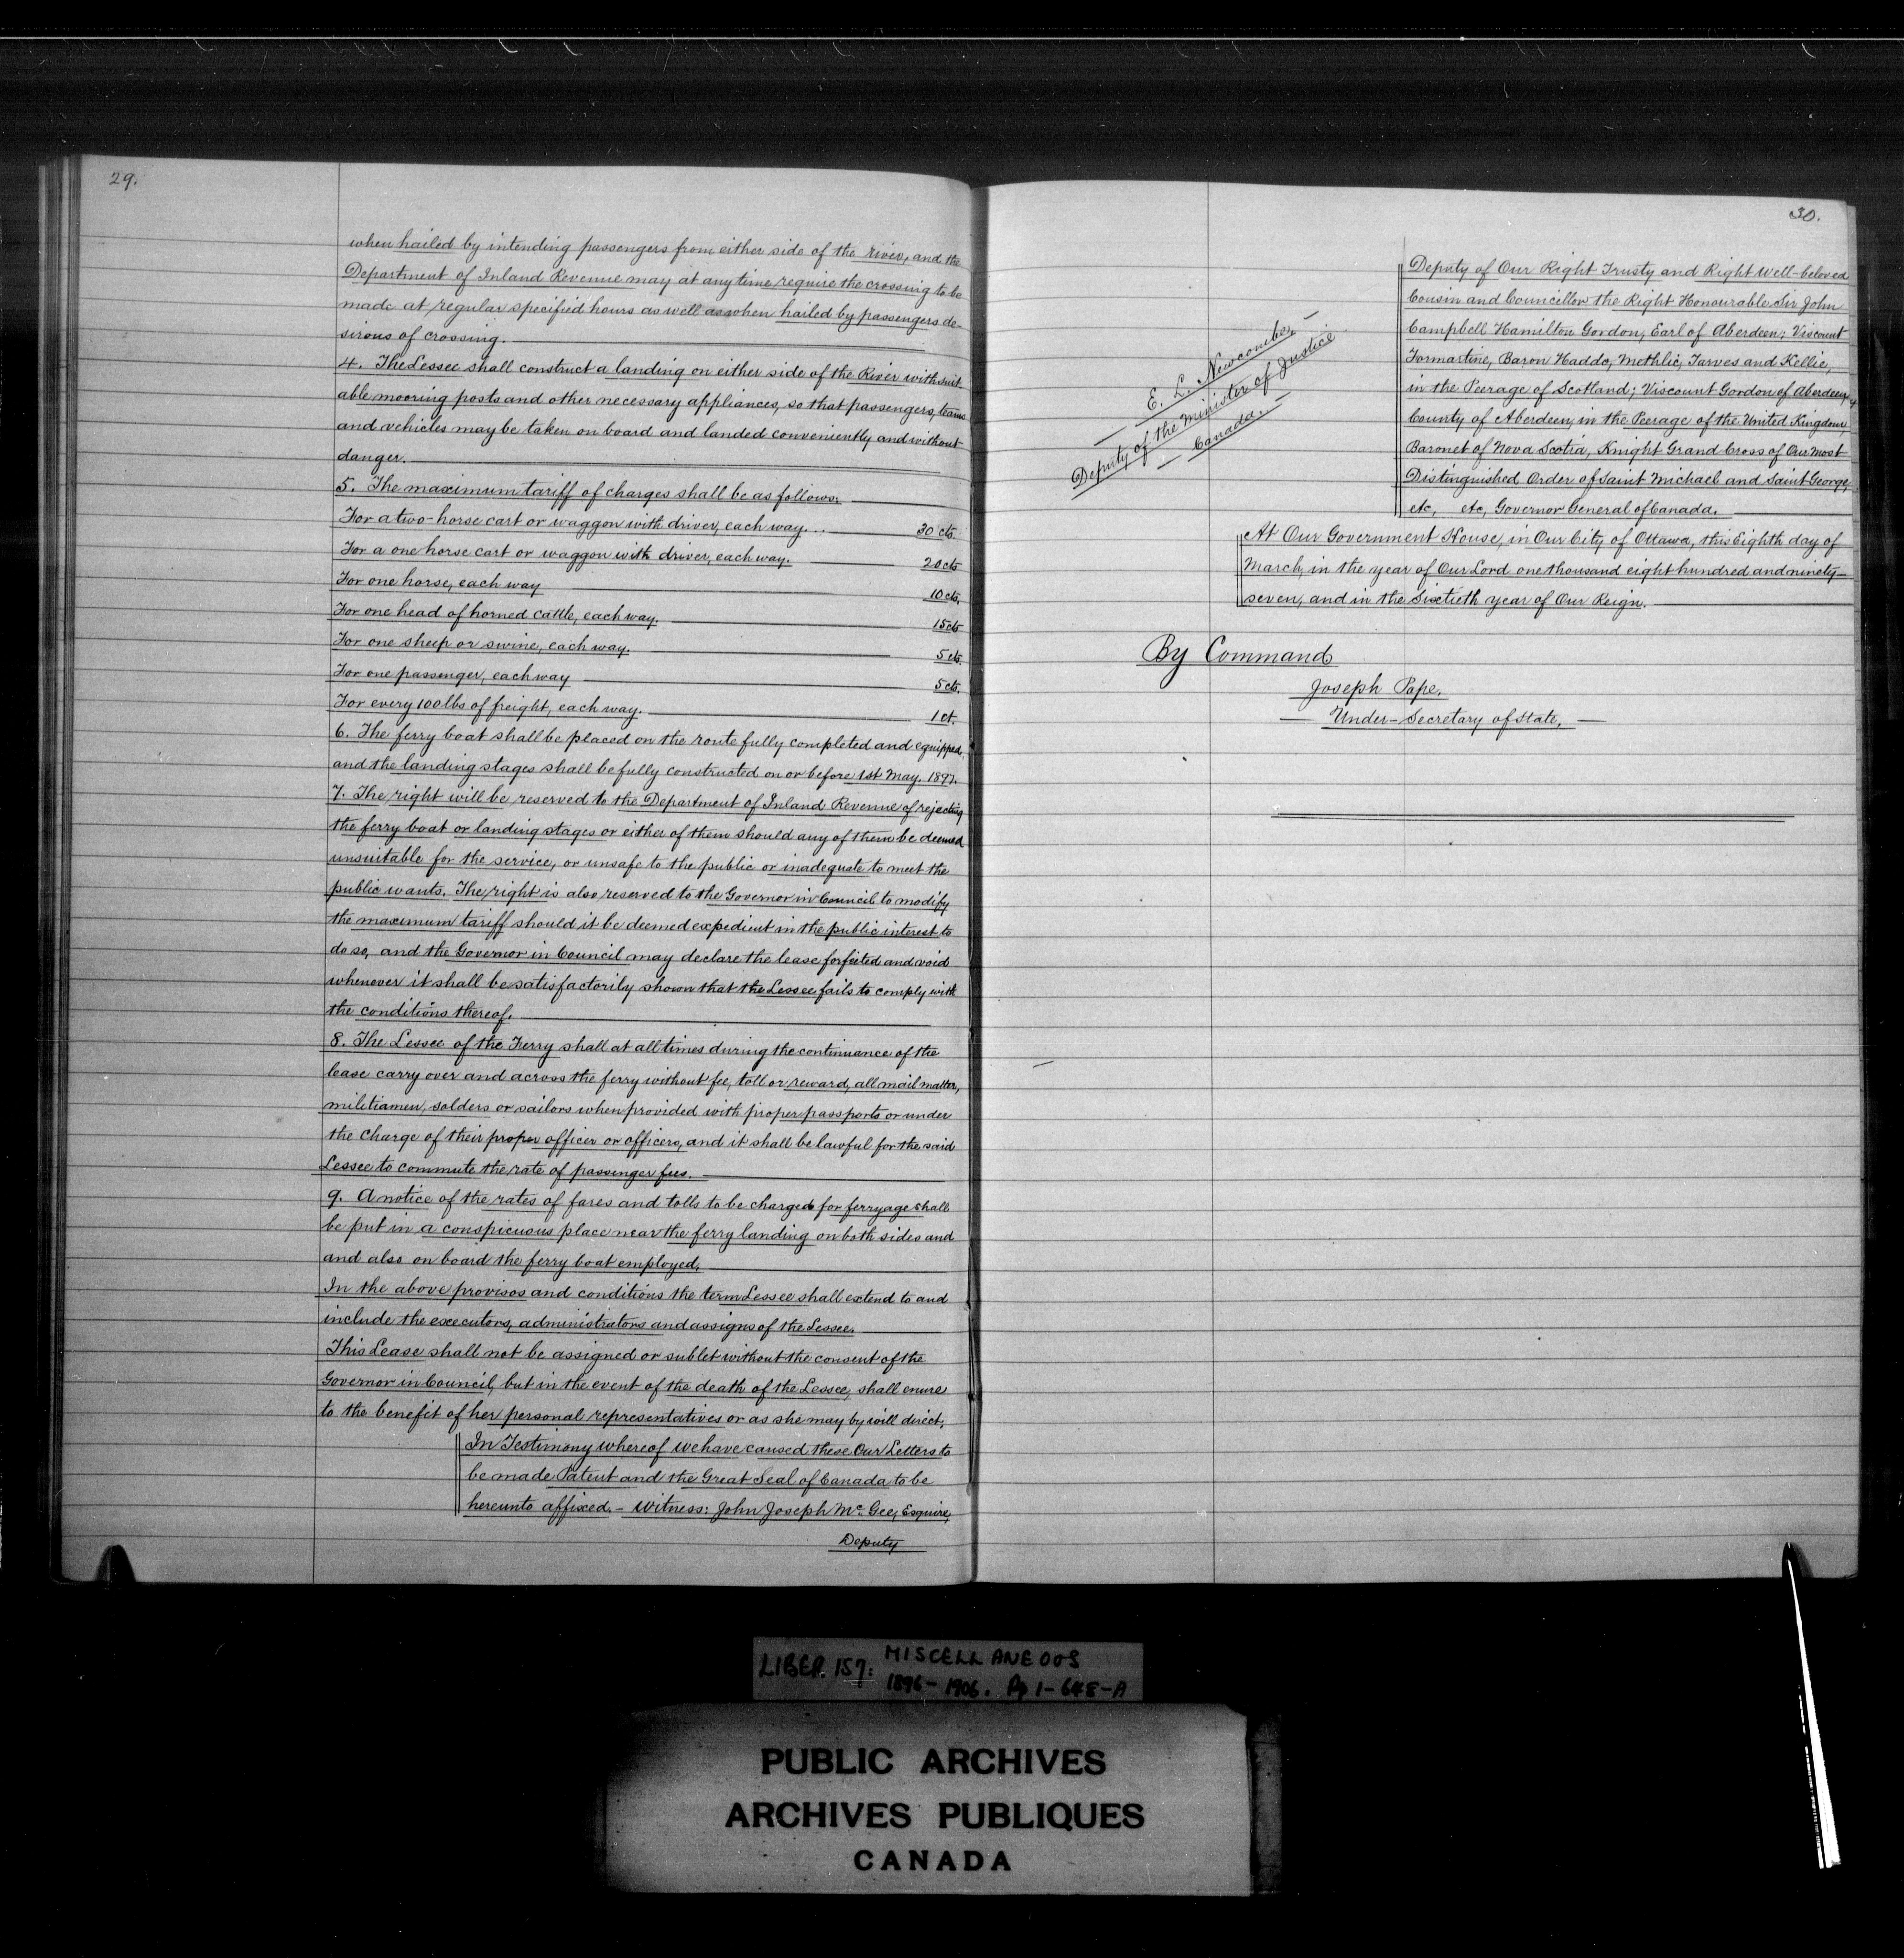 29.
when hailed by intending passengers from either side of the river, and the
Department of Inland Revenue may at any time require the crossing to be
made at regular specified hours as well as when hailed by passengers de-
sirous of crossing.
4. The Lessee shall construct a landing on either side of the River with suit
able mooring posts and other necessary appliances, so that passengers, teams
and vehicles may be taken on board and landed conveniently and without
danger.
5. The maximum tariff of charges shall be as follows:
For a two-horse cart or waggon with driver, each way... 30 cts.
For a one horse cart or waggon with driver, each way. 20 cts
For one horse, each way 10 cts.
For one head of horned cattle, each way. 15 cts
For one sheep or swine, each way. 5 cts.
For one passenger, each way 5 cts.
For every 100 lbs of freight, each way. 1 ct.
6. The ferry boat shall be placed on the route fully completed and equipped,
and the landing stages shall be fully constructed on or before 1st May. 1897.
7. The right will be reserved to the Department of Inland Revenue of rejecting
the ferry boat or landing stages or either of them should any of them be deemed
unsuitable for the service, or unsafe to the public or inadequate to meet the
public wants. The right is also reserved to the Governor in Council to modify
the maximum tariff should it be deemed expedient in the public interest to
do so, and the Governor in Council may declare the lease forfeited and void
whenever it shall be satisfactorily shown that the Lessee fails to comply with
the conditions thereof.
8. The Lessee of the Ferry shall at all times during the continuance of the
lease carry over and across the ferry without fee, toll or reward, all mail matter,
militiamen, solders or sailors when provided with proper passports or under
the charge of their proper officer or officers, and it shall be lawful for the said
Lessee to commute the rate of passenger fees.
9. A notice of the rates of fares and tolls to be charged for ferryage shall
be put in a conspicuous place near the ferry landing on both sides and
and also on board the ferry boat employed.
In the above provisos and conditions the term Lessee shall extend to and
include the executors, administrators and assigns of the Lessee.
This Lease shall not be assigned or sublet without the consent of the
Governor in Council, but in the event of the death of the Lessee, shall enure
to the benefit of her personal representatives or as she may by will direct.
In Testimony whereof We have caused these Our Letters to
be made Patent and the Great Seal of Canada to be
hereunto affixed. - Witness: John Joseph McGee, Esquire,
Deputy
30.
Deputy of Our Right Trusty and Right Well-beloved
Cousin and Councillor the Right Honourable Sir John
Campbell Hamilton Gordon, Earl of Aberdeen; Viscount
Formartine, Baron Haddo, Methlic, Tarves and Kellie,
in the Peerage of Scotland; Viscount Gordon of Aberdeen,
County of Aberdeen, in the Peerage of the United Kingdom,
Baronet of Nova Scotia, Knight Grand Cross of Our Most
Distinguished Order of Saint Michael and Saint George,
etc, etc, Governor General of Canada.
E. L. Newcombe,
Deputy of the Minister of Justice
Canada.
At Our Government House, in Our City of Ottawa, this Eighth day of
March, in the year of Our Lord one thousand eight hundred and ninety-
seven, and in the Sixtieth year of Our Reign.
By Command
Joseph Pope,
Under-Secretary of State,
LIBER. 157: MISCELLANEOUS
1896-1906. Pp 1-648-A
PUBLIC ARCHIVES
ARCHIVES PUBLIQUES
CANADA